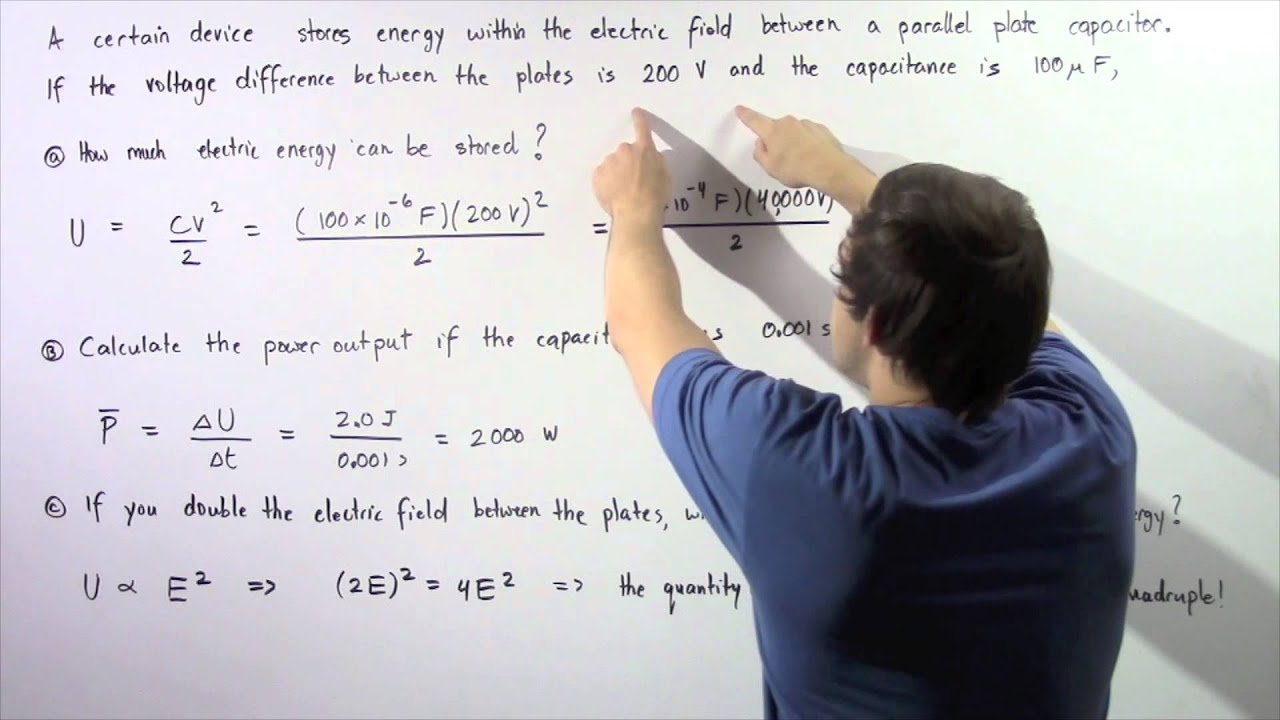 A certain device stores energy within the electric field between a parallel plate capacitor.
If the voltage difference between the plates is 200 V and the capacitance is 100μF,
Ⓐ How much electric energy can be stored?
U = CV²/2 = (100×10⁻⁶ F)(200V)²/2 = 10⁻⁴ F)(40,000V)/2
Ⓑ Calculate the power output if the 0.001 s
P̅ = ΔU/Δt = 2.0 J/0.001 s = 2000 W
Ⓒ If you double the electric field between the plates,
U ∝ E² => (2E)² = 4E² => the quantity